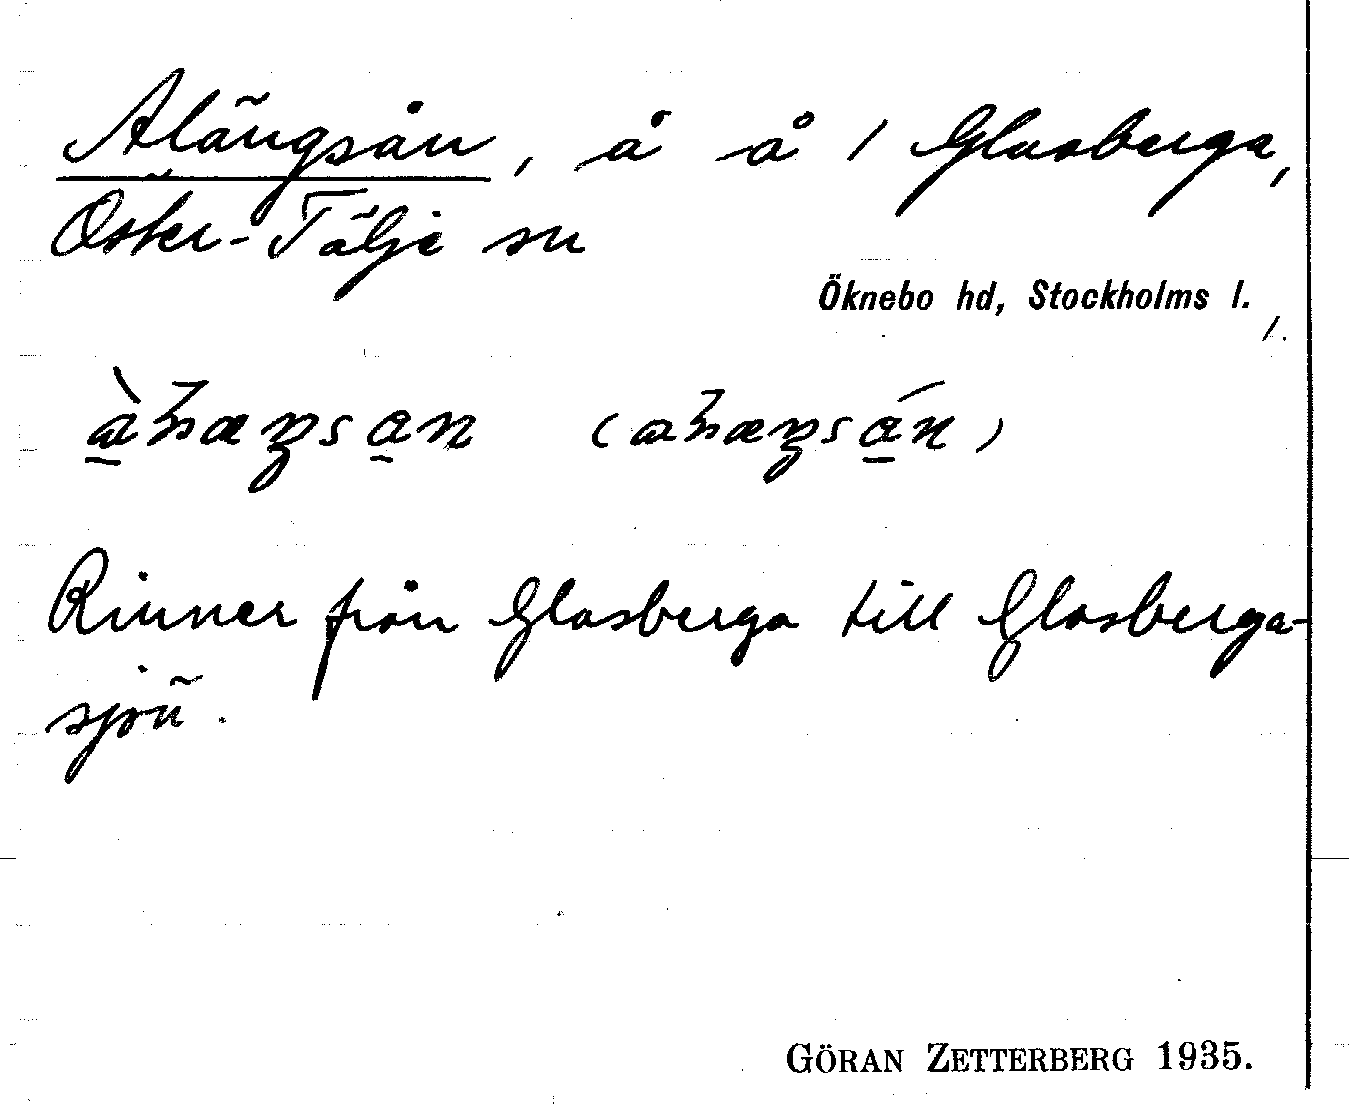 Alängsån, å å / Glasberga,
Öster-Tälje sn
Öknebo hd, Stockholms l.
/.
Rinner från Glasberga till Glasberga-
sjön.
GÖRAN ZETTERBERG 1935.